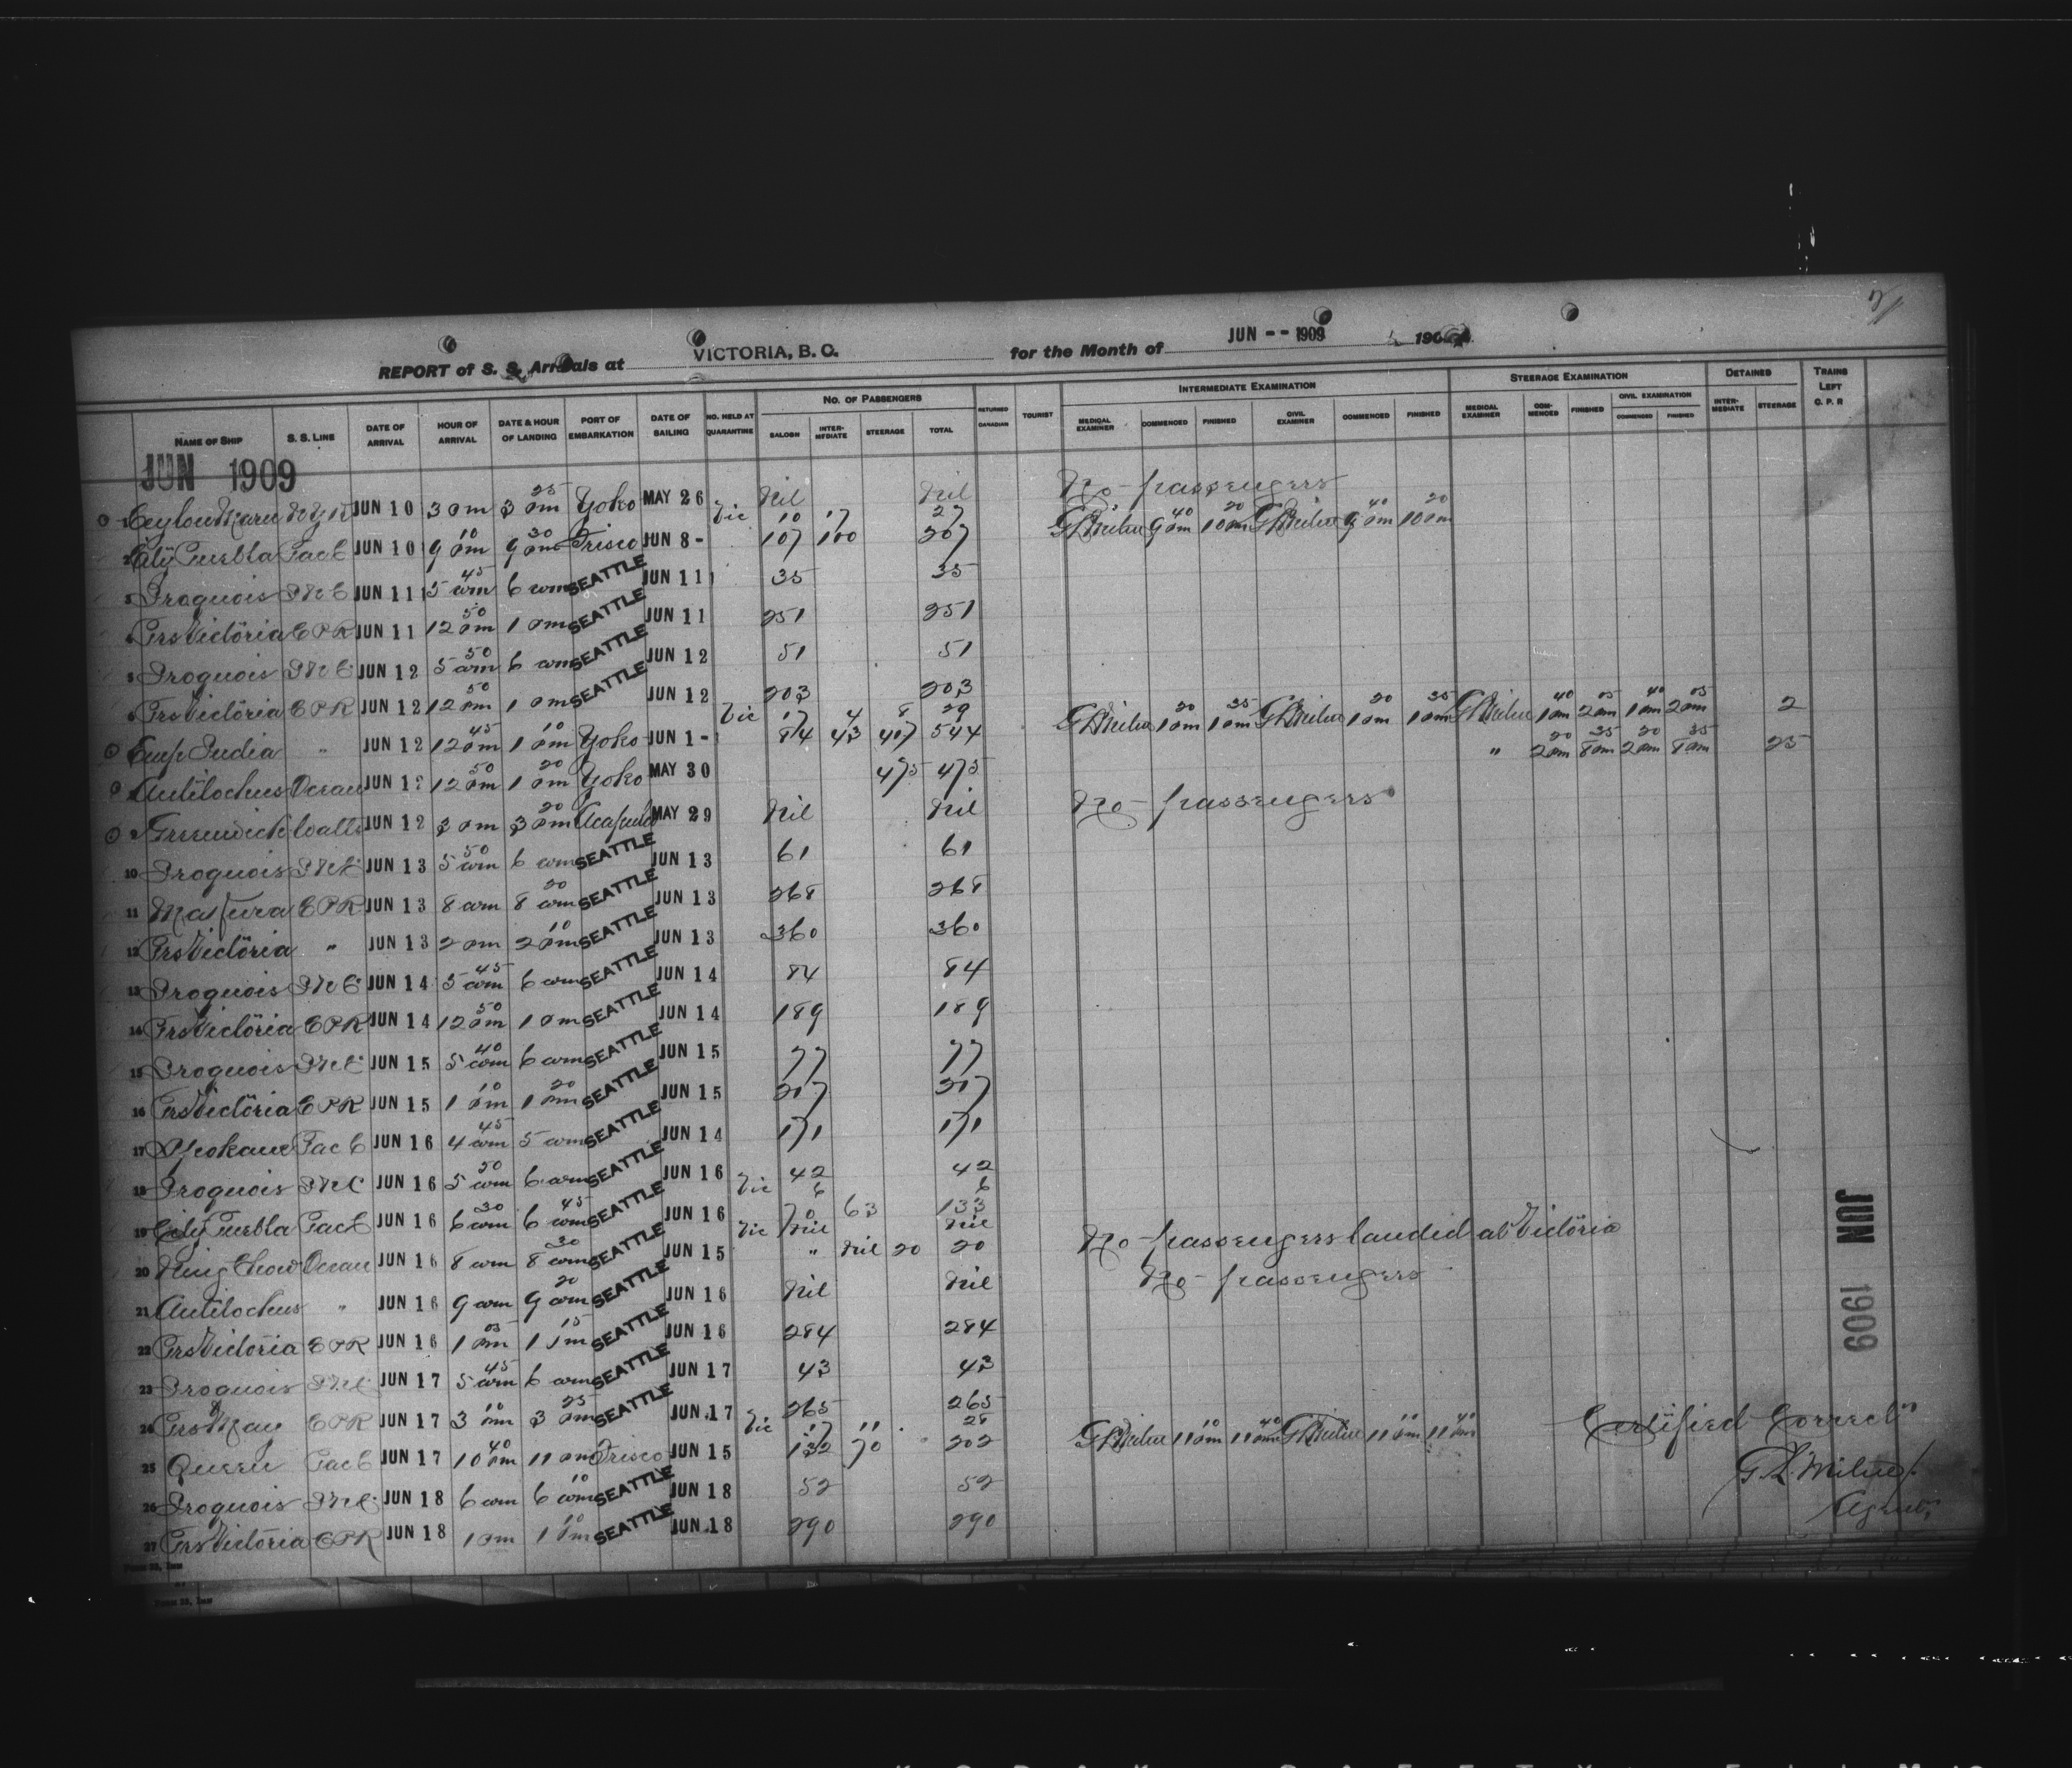 REPORT of S. S. Arrivals at VICTORIA, B. C. for the Month of JUN -- 1909 190
NO. OF PASSENGERS INTERMEDIATE EXAMINATION STEERAGE EXAMINATION DETAINED TRAINS LEFT C. P. R
NAME OF SHIP S. S. LINE DATE OF ARRIVAL HOUR OF ARRIVAL DATE & HOUR OF LANDING PORT OF EMBARKATION DATE OF SAILING NO. HELD AT QUARANTINE SALOON INTERMEDIATE STEERAGE TOTAL RETURNED CANADIAN TOURIST MEDICAL EXAMINER COMMENCED FINISHED CIVIL EXAMINER COMMENCED FINISHED MEDICAL EXAMINER COMMENCED FINISHED CIVIL EXAMINATION COMMENCED FINISHED INTERMEDIATE STEERAGE
JUN 1909
1 Ceylon Maru N Y K JUN 10 3 pm 3 25 pm Yoko MAY 26 Nil Nil No passengers
Vic 10 17 27 G L Milne 9 40 pm 10 20 pm G L Milne 9 40 pm 10 20 pm
2 City Puebla Pac C JUN 10 9 10 pm 9 30 pm Frisco JUN 8 - 107 100 207
3 Iroquois JUN 11 5 45 am 6 am SEATTLE JUN 11 35 35
4 Prs Victoria C P R JUN 11 12 50 pm 1 pm SEATTLE JUN 11 251 251
5 Iroquois JUN 12 5 50 am 6 am SEATTLE JUN 12 51 51
6 Prs Victoria C P R JUN 12 12 50 pm 1 pm SEATTLE JUN 12 203 203
Vic 17 4 8 29 G L Milne 1 20 pm 1 35 pm G L Milne 1 20 pm 1 35 pm G L Milne 1 40 pm 2 05 pm 1 40 pm 2 05 pm 2
Emp India " JUN 12 12 45 pm 1 10 pm Yoko JUN 1 - 94 43 407 544
" 2 20 pm 8 35 pm 2 20 pm 8 35 pm 25
Antilochus Ocean JUN 12 12 50 pm 1 20 pm Yoko MAY 30 475 475
9 Greenwich JUN 12 3 pm 3 20 pm Acapulco MAY 29 Nil Nil No passengers
10 Iroquois JUN 13 5 50 am 6 am SEATTLE JUN 13 61 61
11 C P R JUN 13 8 am 8 20 am SEATTLE JUN 13 268 268
12 Prs Victoria " JUN 13 2 pm 2 10 pm SEATTLE JUN 13 360 360
13 Iroquois JUN 14 5 45 am 6 am SEATTLE JUN 14 84 84
14 Prs Victoria C P R JUN 14 12 50 pm 1 pm SEATTLE JUN 14 189 189
15 Iroquois JUN 15 5 40 am 6 am SEATTLE JUN 15 77 77
16 Prs Victoria C P R JUN 15 1 10 pm 1 20 pm SEATTLE JUN 15 207 207
17 Spokane Pac C JUN 16 4 45 am 5 am SEATTLE JUN 14 171 171
18 Iroquois JUN 16 5 50 am 6 am SEATTLE JUN 16 42 42
Vic 6 6
19 City Puebla Pac C JUN 16 6 30 am 6 45 am SEATTLE JUN 16 70 63 133
Vic Nil Nil No passengers landed at Victoria
20 Ning Chow Ocean JUN 16 8 am 8 30 am SEATTLE JUN 15 " Nil 20 20
21 Antilochus " JUN 16 9 am 9 20 am SEATTLE JUN 16 Nil Nil No passengers
22 Prs Victoria C P R JUN 16 1 05 pm 1 15 pm SEATTLE JUN 16 284 284
23 Iroquois JUN 17 5 45 am 6 am SEATTLE JUN 17 43 43
24 Prs May C P R JUN 17 3 10 pm 3 25 pm SEATTLE JUN 17 265 265
Vic 17 11 28 G L Milne 11 10 pm 11 40 pm G L Milne 11 10 pm 11 40 pm
25 Queen Pac C JUN 17 10 40 pm 11 pm Frisco JUN 15 132 70 202
26 Iroquois JUN 18 6 am 6 10 am SEATTLE JUN 18 52 52
27 Prs Victoria C P R JUN 18 1 pm 1 10 pm SEATTLE JUN 18 290 290
JUN 1909
Certified Correct
G. L. Milne
Agent